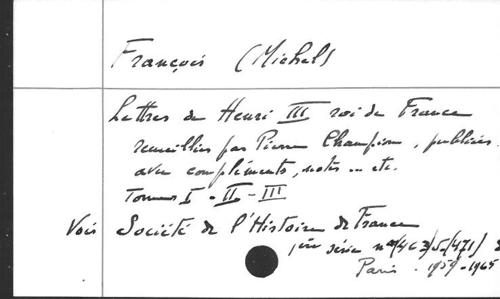 François (Michel)
Lettres de Henri III roi de France
recueillies par Pierre Champion, publiées
avec compléments, notes... etc.
Tomes I - II - III
Voir Société de l'Histoire de France
1ère série
Paris. 1959-1965